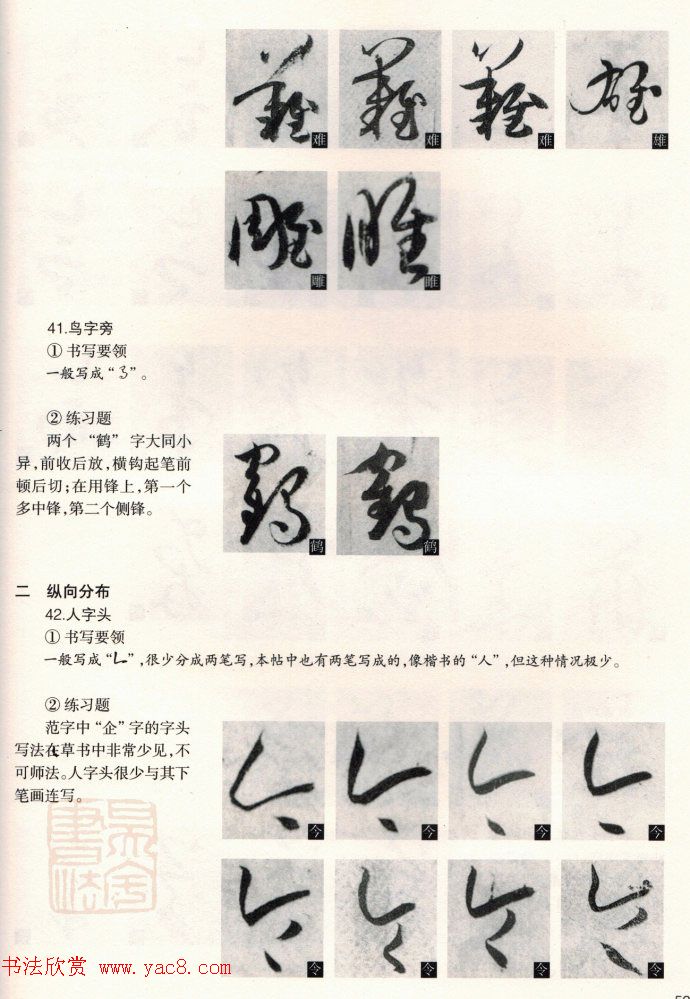 难 难 难 雄
雕 雎
41.鸟字旁
① 书写要领
一般写成“ ”。
② 练习题
两个 “鹤” 字大同小
异,前收后放,横钩起笔前
顿后切;在用锋上,第一个
多中锋,第二个侧锋。
鹤 鹤
二 纵向分布
42.人字头
① 书写要领
一般写成“ ”,很少分成两笔写,本帖中也有两笔写成的,像楷书的“人”,但这种情况极少。
② 练习题
范字中“企”字的字头
写法在草书中非常少见,不
可师法。人字头很少与其下
笔画连写。
今 今 今 今
令 令 令 令
书法欣赏 www.yac8.com